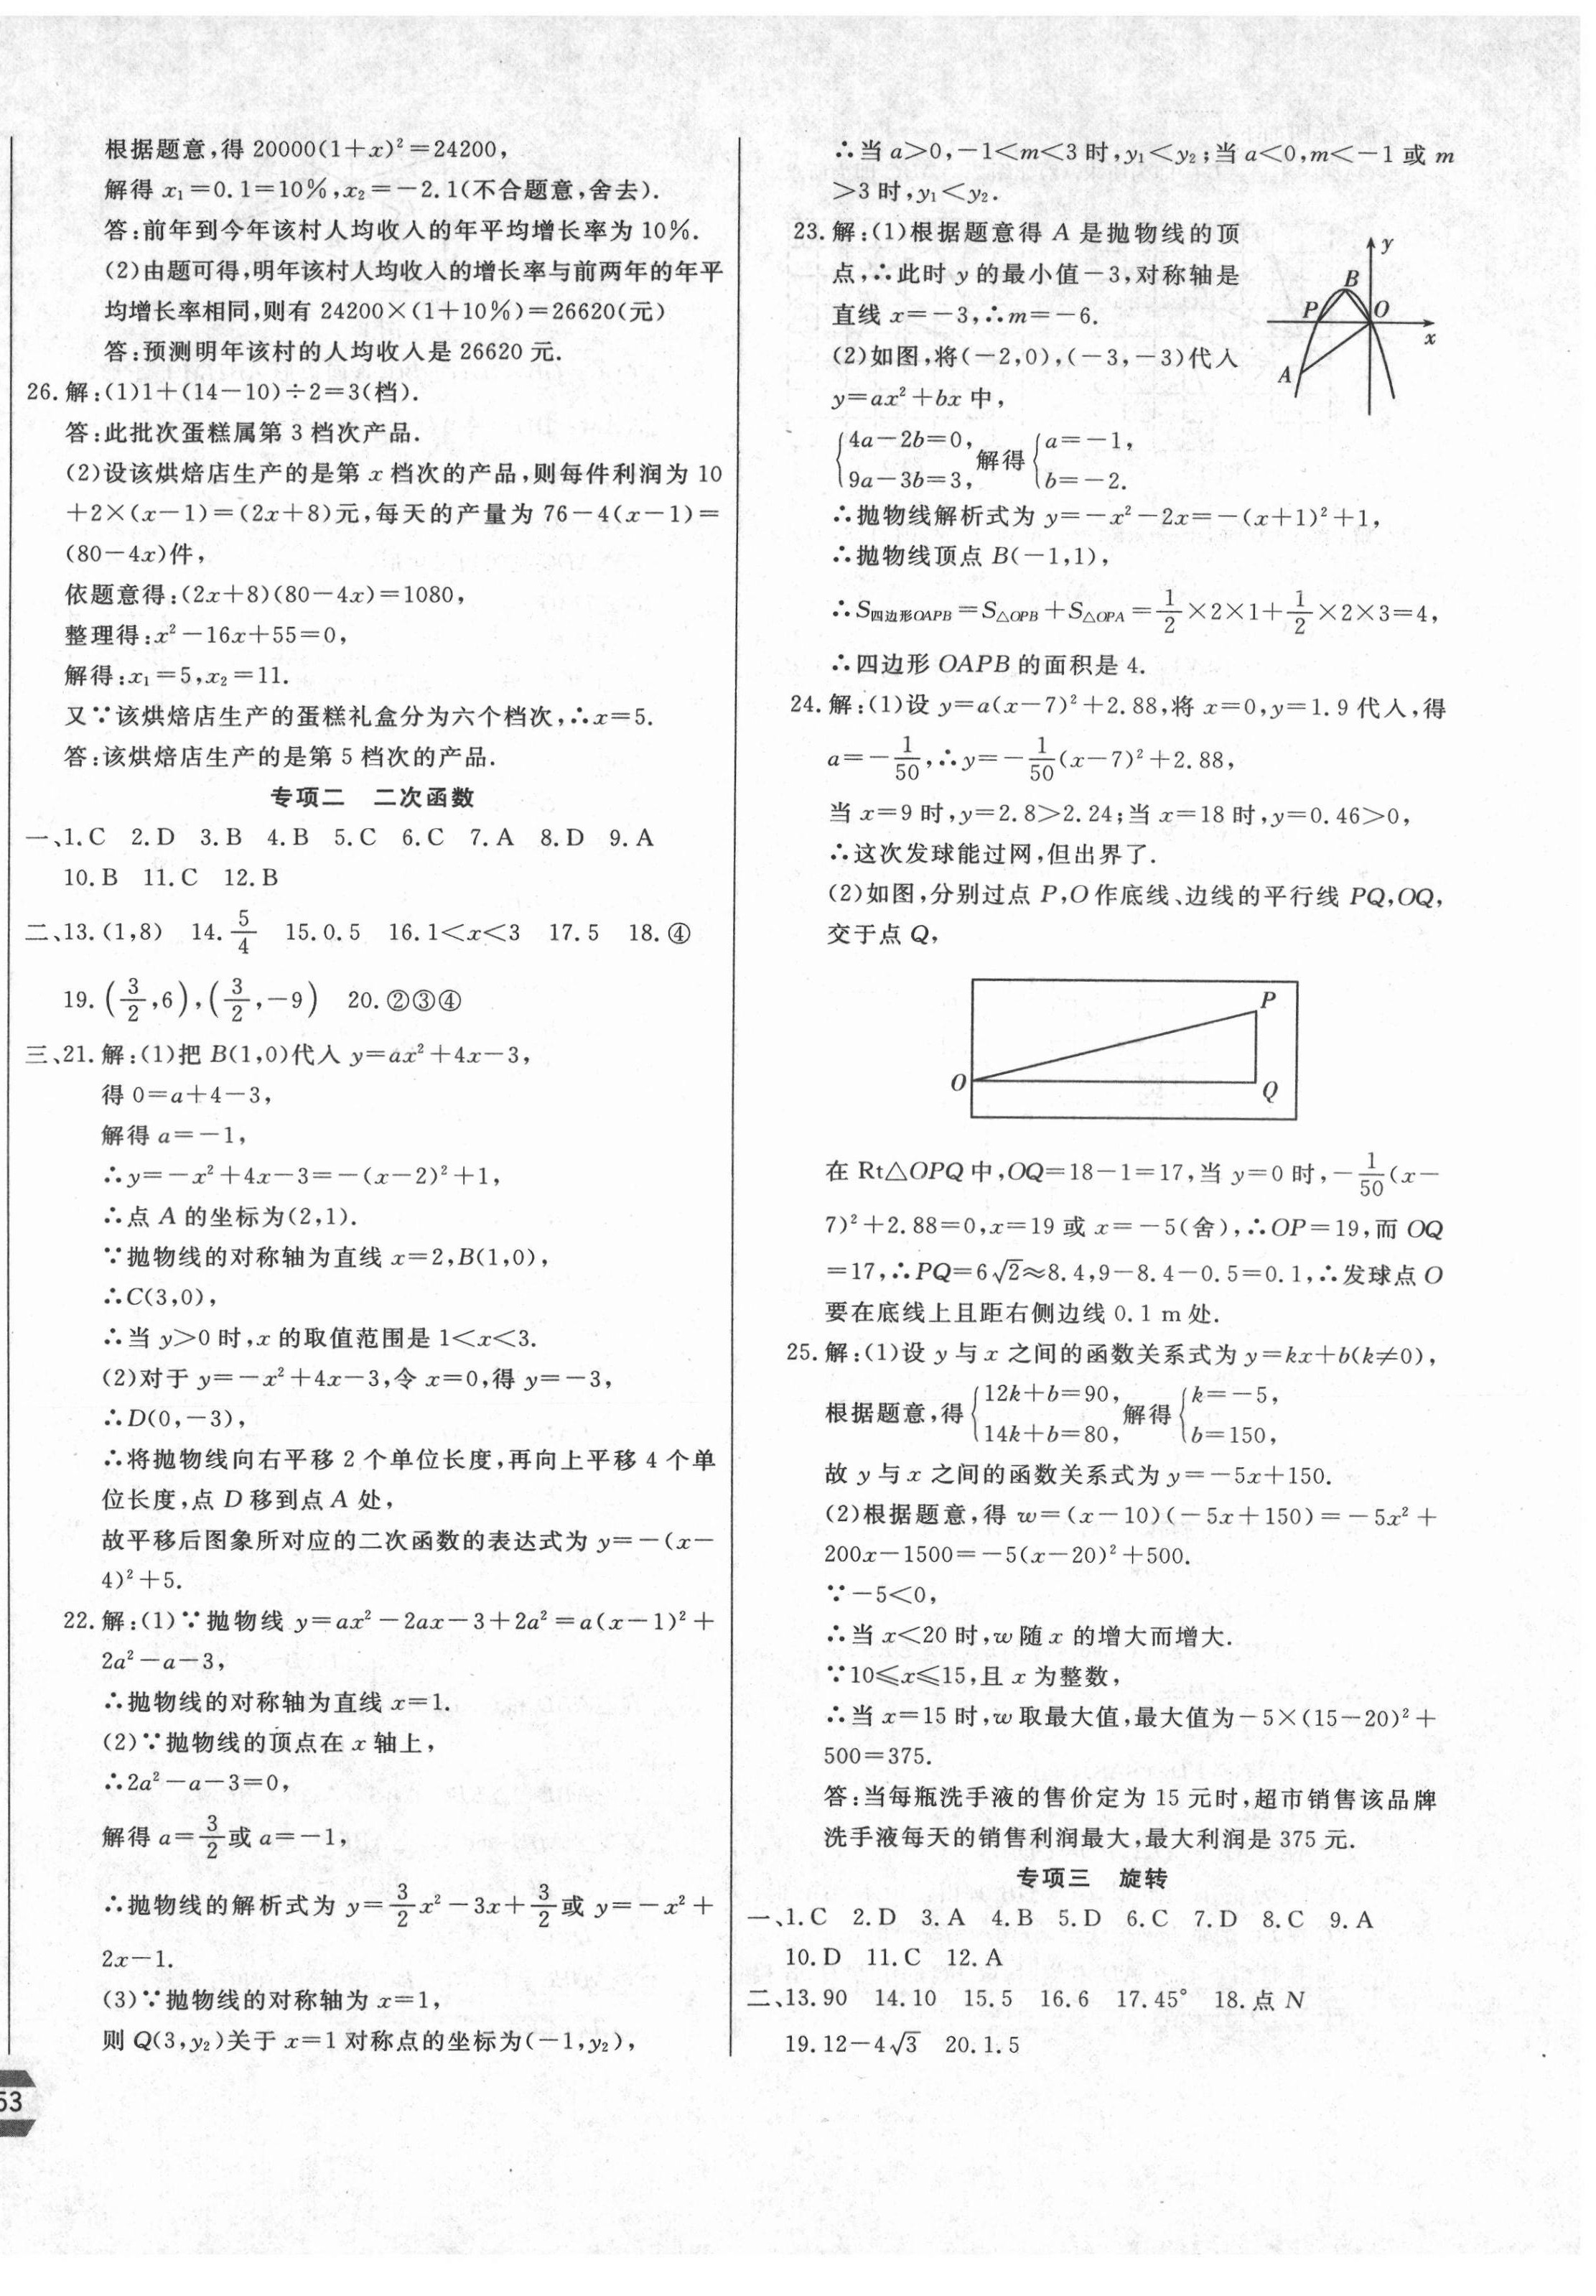 根据题意,得 20000(1+x)²=24200,
解得 x₁=0.1=10%,x₂=-2.1(不合题意,舍去).
答:前年到今年该村人均收入的年平均增长率为 10%.
(2)由题可得,明年该村人均收入的增长率与前两年的年平
均增长率相同,则有 24200×(1+10%)=26620(元)
答:预测明年该村的人均收入是 26620 元.
26.解:(1)1+(14-10)÷2=3(档).
答:此批次蛋糕属第 3 档次产品.
(2)设该烘焙店生产的是第 x 档次的产品,则每件利润为 10
+2×(x-1)=(2x+8)元,每天的产量为 76-4(x-1)=
(80-4x)件,
依题意得:(2x+8)(80-4x)=1080,
整理得:x²-16x+55=0,
解得:x₁=5,x₂=11.
又∵该烘焙店生产的蛋糕礼盒分为六个档次,∴x=5.
答:该烘焙店生产的是第 5 档次的产品.
专项二 二次函数
一、1.C 2.D 3.B 4.B 5.C 6.C 7.A 8.D 9.A
10.B 11.C 12.B
二、13.(1,8) 14.5/4 15.0.5 16.1<x<3 17.5 18.④
19.(3/2,6),(3/2,-9) 20.②③④
三、21.解:(1)把 B(1,0)代入 y=ax²+4x-3,
得 0=a+4-3,
解得 a=-1,
∴y=-x²+4x-3=-(x-2)²+1,
∴点 A 的坐标为(2,1).
∵抛物线的对称轴为直线 x=2,B(1,0),
∴C(3,0),
∴当 y>0 时,x 的取值范围是 1<x<3.
(2)对于 y=-x²+4x-3,令 x=0,得 y=-3,
∴D(0,-3),
∴将抛物线向右平移 2 个单位长度,再向上平移 4 个单
位长度,点 D 移到点 A 处,
故平移后图象所对应的二次函数的表达式为 y=-(x-
4)²+5.
22.解:(1)∵抛物线 y=ax²-2ax-3+2a²=a(x-1)²+
2a²-a-3,
∴抛物线的对称轴为直线 x=1.
(2)∵抛物线的顶点在 x 轴上,
∴2a²-a-3=0,
解得 a=3/2或 a=-1,
∴抛物线的解析式为 y=3/2x²-3x+3/2或 y=-x²+
2x-1.
(3)∵抛物线的对称轴为 x=1,
则 Q(3,y₂)关于 x=1 对称点的坐标为(-1,y₂),
53
∴当 a>0,-1<m<3 时,y₁<y₂;当 a<0,m<-1 或 m
>3 时,y₁<y₂.
23.解:(1)根据题意得 A 是抛物线的顶
点,∴此时 y 的最小值-3,对称轴是
直线 x=-3,∴m=-6.
(2)如图,将(-2,0),(-3,-3)代入
y=ax²+bx 中,
y
B
P
O
x
A
{4a-2b=0, 9a-3b=3, 解得{a=-1, b=-2.
∴抛物线解析式为 y=-x²-2x=-(x+1)²+1,
∴抛物线顶点 B(-1,1),
∴S四边形OAPB=S△OPB+S△OPA=1/2×2×1+1/2×2×3=4,
∴四边形 OAPB 的面积是 4.
24.解:(1)设 y=a(x-7)²+2.88,将 x=0,y=1.9 代入,得
a=-1/50,∴y=-1/50(x-7)²+2.88,
当 x=9 时,y=2.8>2.24;当 x=18 时,y=0.46>0,
∴这次发球能过网,但出界了.
(2)如图,分别过点 P,O 作底线、边线的平行线 PQ,OQ,
交于点 Q,
P
O
Q
在 Rt△OPQ 中,OQ=18-1=17,当 y=0 时,-1/50(x-
7)²+2.88=0,x=19 或 x=-5(舍),∴OP=19,而 OQ
=17,∴PQ=6√2≈8.4,9-8.4-0.5=0.1,∴发球点 O
要在底线上且距右侧边线 0.1 m 处.
25.解:(1)设 y 与 x 之间的函数关系式为 y=kx+b(k≠0),
根据题意,得{12k+b=90, 14k+b=80, 解得{k=-5, b=150,
故 y 与 x 之间的函数关系式为 y=-5x+150.
(2)根据题意,得 w=(x-10)(-5x+150)=-5x²+
200x-1500=-5(x-20)²+500.
∵-5<0,
∴当 x<20 时,w 随 x 的增大而增大.
∵10≤x≤15,且 x 为整数,
∴当 x=15 时,w 取最大值,最大值为-5×(15-20)²+
500=375.
答:当每瓶洗手液的售价定为 15 元时,超市销售该品牌
洗手液每天的销售利润最大,最大利润是 375 元.
专项三 旋转
一、1.C 2.D 3.A 4.B 5.D 6.C 7.D 8.C 9.A
10.D 11.C 12.A
二、13.90 14.10 15.5 16.6 17.45° 18.点 N
19.12-4√3 20.1.5